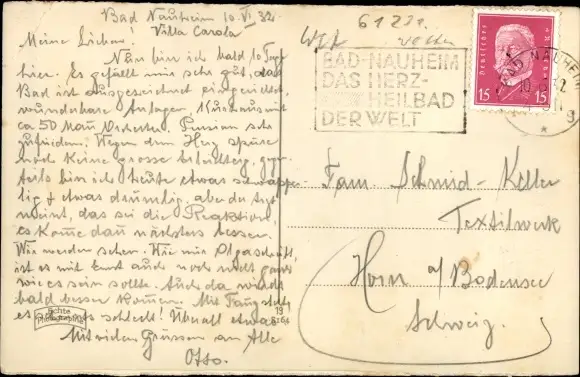 Bad Nauheim 10. VI. 32.
Villa Carola
Meine Lieben!
Nun bin ich bald 10 Tage
hier. Es gefällt mir sehr gut, das
Bad ist ausgezeichnet eingerichtet,
wunderbare Anlagen, Kurhaus mit
ca 50 Man Orchester. Pension sehr
zufrieden. Wegen dem Herz spüre
noch keine grosse
teils bin ich heute etwas schwappe-
lig + etwas aber der Arzt
meint, das sei die Reaktion,
es kome dan nächstens besser.
Wir werden sehen. Wie mir Olga schreibt,
ist es mit auch noch nicht ganz
wie es sein sollte. Auch da wird's
bald besser komen. Mit
es schlecht! Überall etwas.
Mit vielen Grüssen an Alle
Otto.
Echte
Photographie
19
61221.
BAD-NAUHEIM
DAS HERZ-
HEILBAD
DER WELT
Deutsches Reich
15 15
BAD NAUHEIM
Fam. Schmid-Keller
Textilwerk
Horn a/Bodensee
Schweiz.